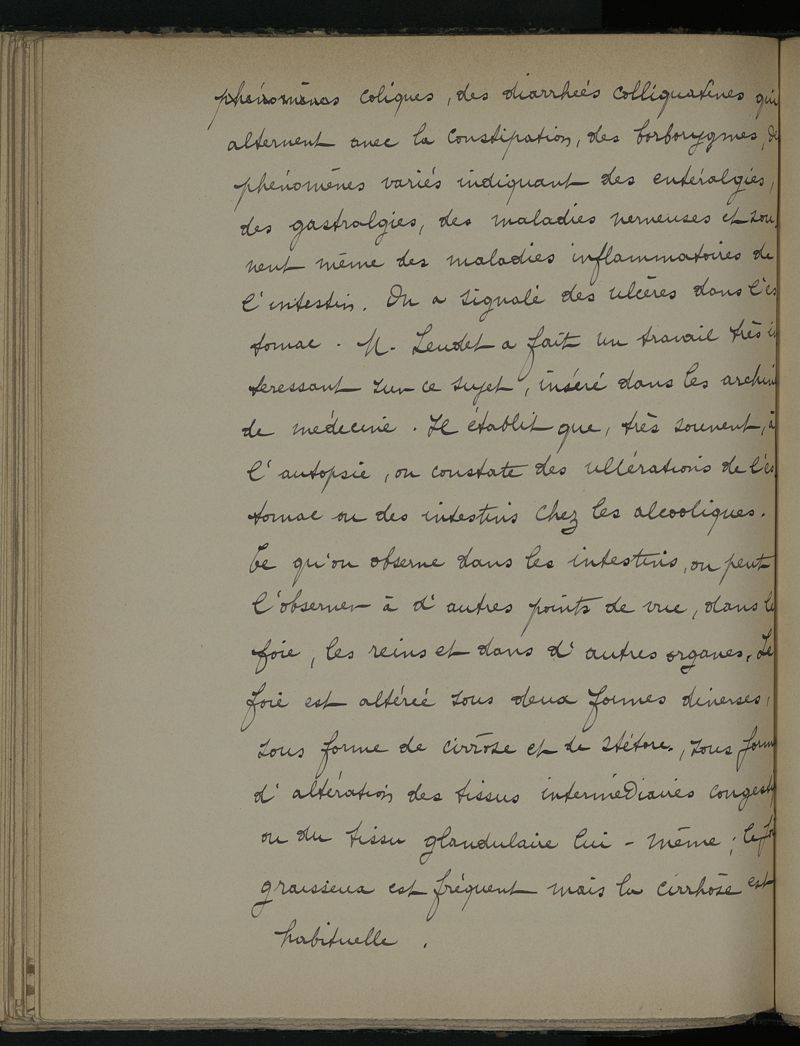 phénomènes coliques, des diarrheés colliquatives qui
alternent avec la constipation, des borborygmes, de
phénomènes variés indiquant des entéralgies,
des gastralgies, des maladies nerveuses et sou
vent même des maladies inflammatoires de
l'intestin. On a signalé des ulcères dans l'es
tomac. M. Leudet a fait un travail très in
teressant sur ce sujet, inséré dans les archiv
de médecine. Il établit que, très souvent, à
l'autopsie, on constate des ullérations de l'es
tomac ou des intestins chez les alcooliques.
Ce qu'on observe dans les intestins, on peut
l'observer à d'autres points de vue, dans le
foie, les reins et dans d'autres organes. Le
foie est altéréé sous deux formes diverses,
sous forme de cirrose et de stétore, sous form
d'altération des tissus intermédiaires congesti
ou du tissu glandulaire lui-même; le foi
graisseux est fréquent mais la cirrhose est
habituelle.